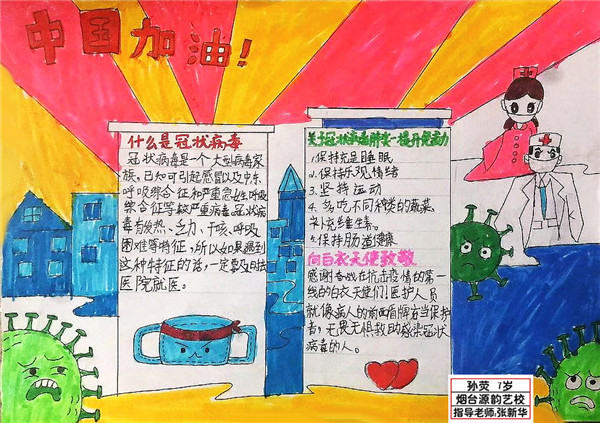 中国加油！
什么是冠状病毒
冠状病毒是一个大型病毒家
族，已知可引起感冒以及中东
呼吸综合征和严重急性呼吸
综合征等较严重病毒冠状病
毒有发热、乏力、干咳、呼吸
困难等特征，所以如果遇到
这种特征的话，一定要及时去
医院就医。
关于冠状病毒肺炎—提升免疫力
1.保持充足睡眠
2.保持乐观情绪
3.坚持运动
4.多吃不同种类的蔬菜
补充维生素。
5.保持肠道健康
向白衣天使致敬
感谢奋战在抗击疫情的第一
线的白衣天使们！医护人员
就像病人的前面盾牌在当保护
者，无畏无惧救助感染冠状
病毒的人。
孙荧 7岁
烟台源韵艺校
指导老师.张新华